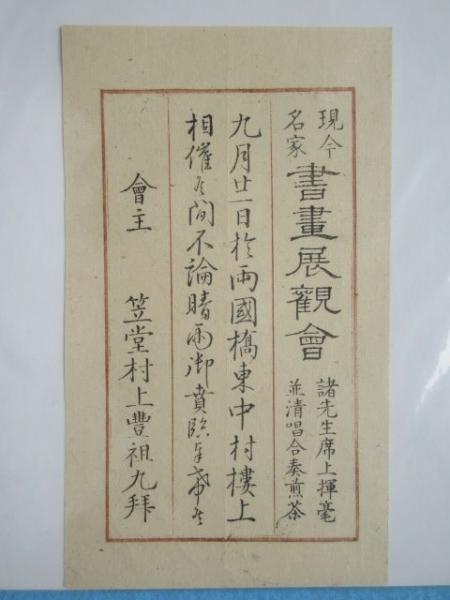 現今
名家
書畫展観會
諸先生席上揮毫
並清唱合奏煎茶
九月廿一日於兩國橋東中村樓上
相催候間不論晴雨御賁臨奉希候
會主　笠堂村上豐祖九拜